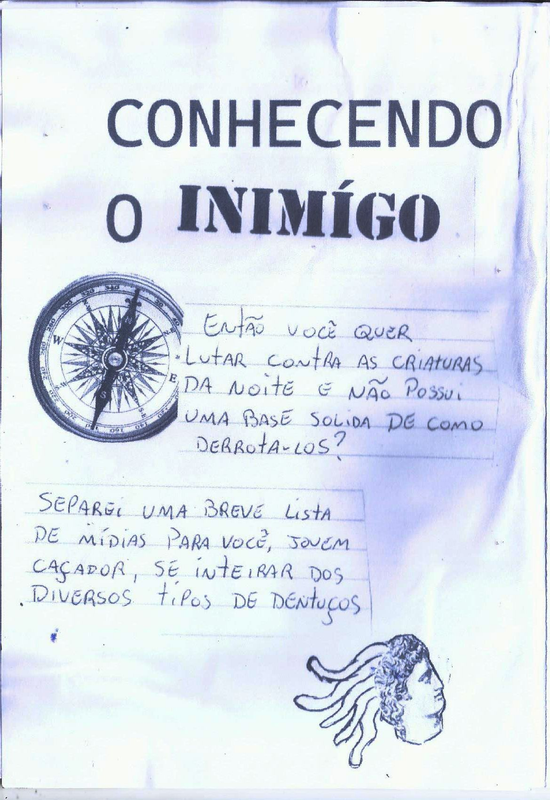 CONHECENDO
O INIMÍGO
ENTÃO VOCÊ QUER
LUTAR CONTRA AS CRIATURAS
DA NOITE E NÃO POSSUI
UMA BASE SOLIDA DE COMO
DERROTA-LOS?
SEPAREI UMA BREVE LISTA
DE MÍDIAS PARA VOCÊ, JOVEM
CAÇADOR, SE INTEIRAR DOS
DIVERSOS TIPOS DE DENTUÇOS
W
E
S